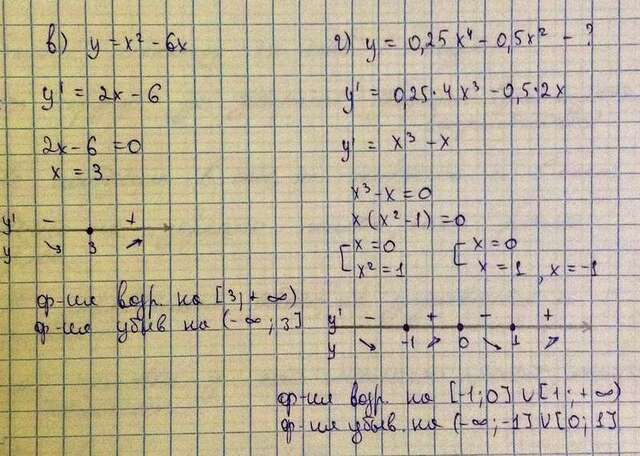 в) y = x² - 6x
y' = 2x - 6
2x - 6 = 0
x = 3
y' - +
y ↘ 3 ↗
ф-ия возр. на [3; +∞)
ф-ия убыв на (-∞; 3]
г) y = 0,25x⁴ - 0,5x² - ?
y' = 0,25·4x³ - 0,5·2x
y' = x³ - x
x³ - x = 0
x(x² - 1) = 0
[x = 0 [x = 0
x² = 1 x = 1, x = -1
y' - + - +
y ↘ -1 ↗ 0 ↘ 1 ↗
ф-ия возр. на [-1; 0] ∪ [1; +∞)
ф-ия убыв. на (-∞; -1] ∪ [0; 1]